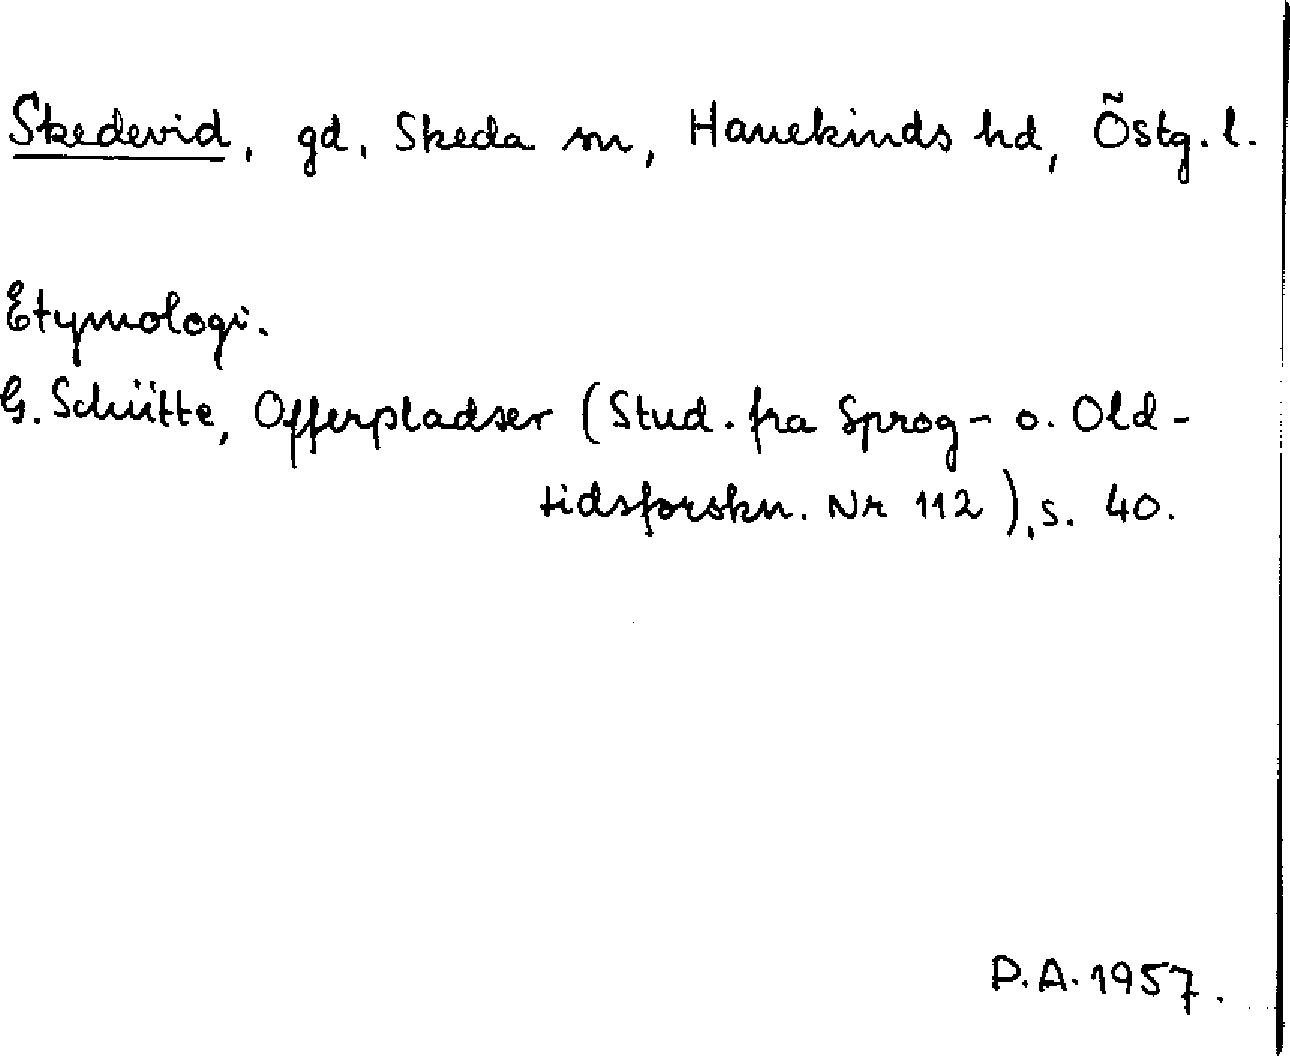 Skedevid, gd, Skeda sn, Hanekinds hd, Östg. l.
Etymologi.
G. Schütte, Offerpladser (Stud. fra Sprog- o. Old-
tidsforskn. Nr 112), s. 40.
D.A. 1957.